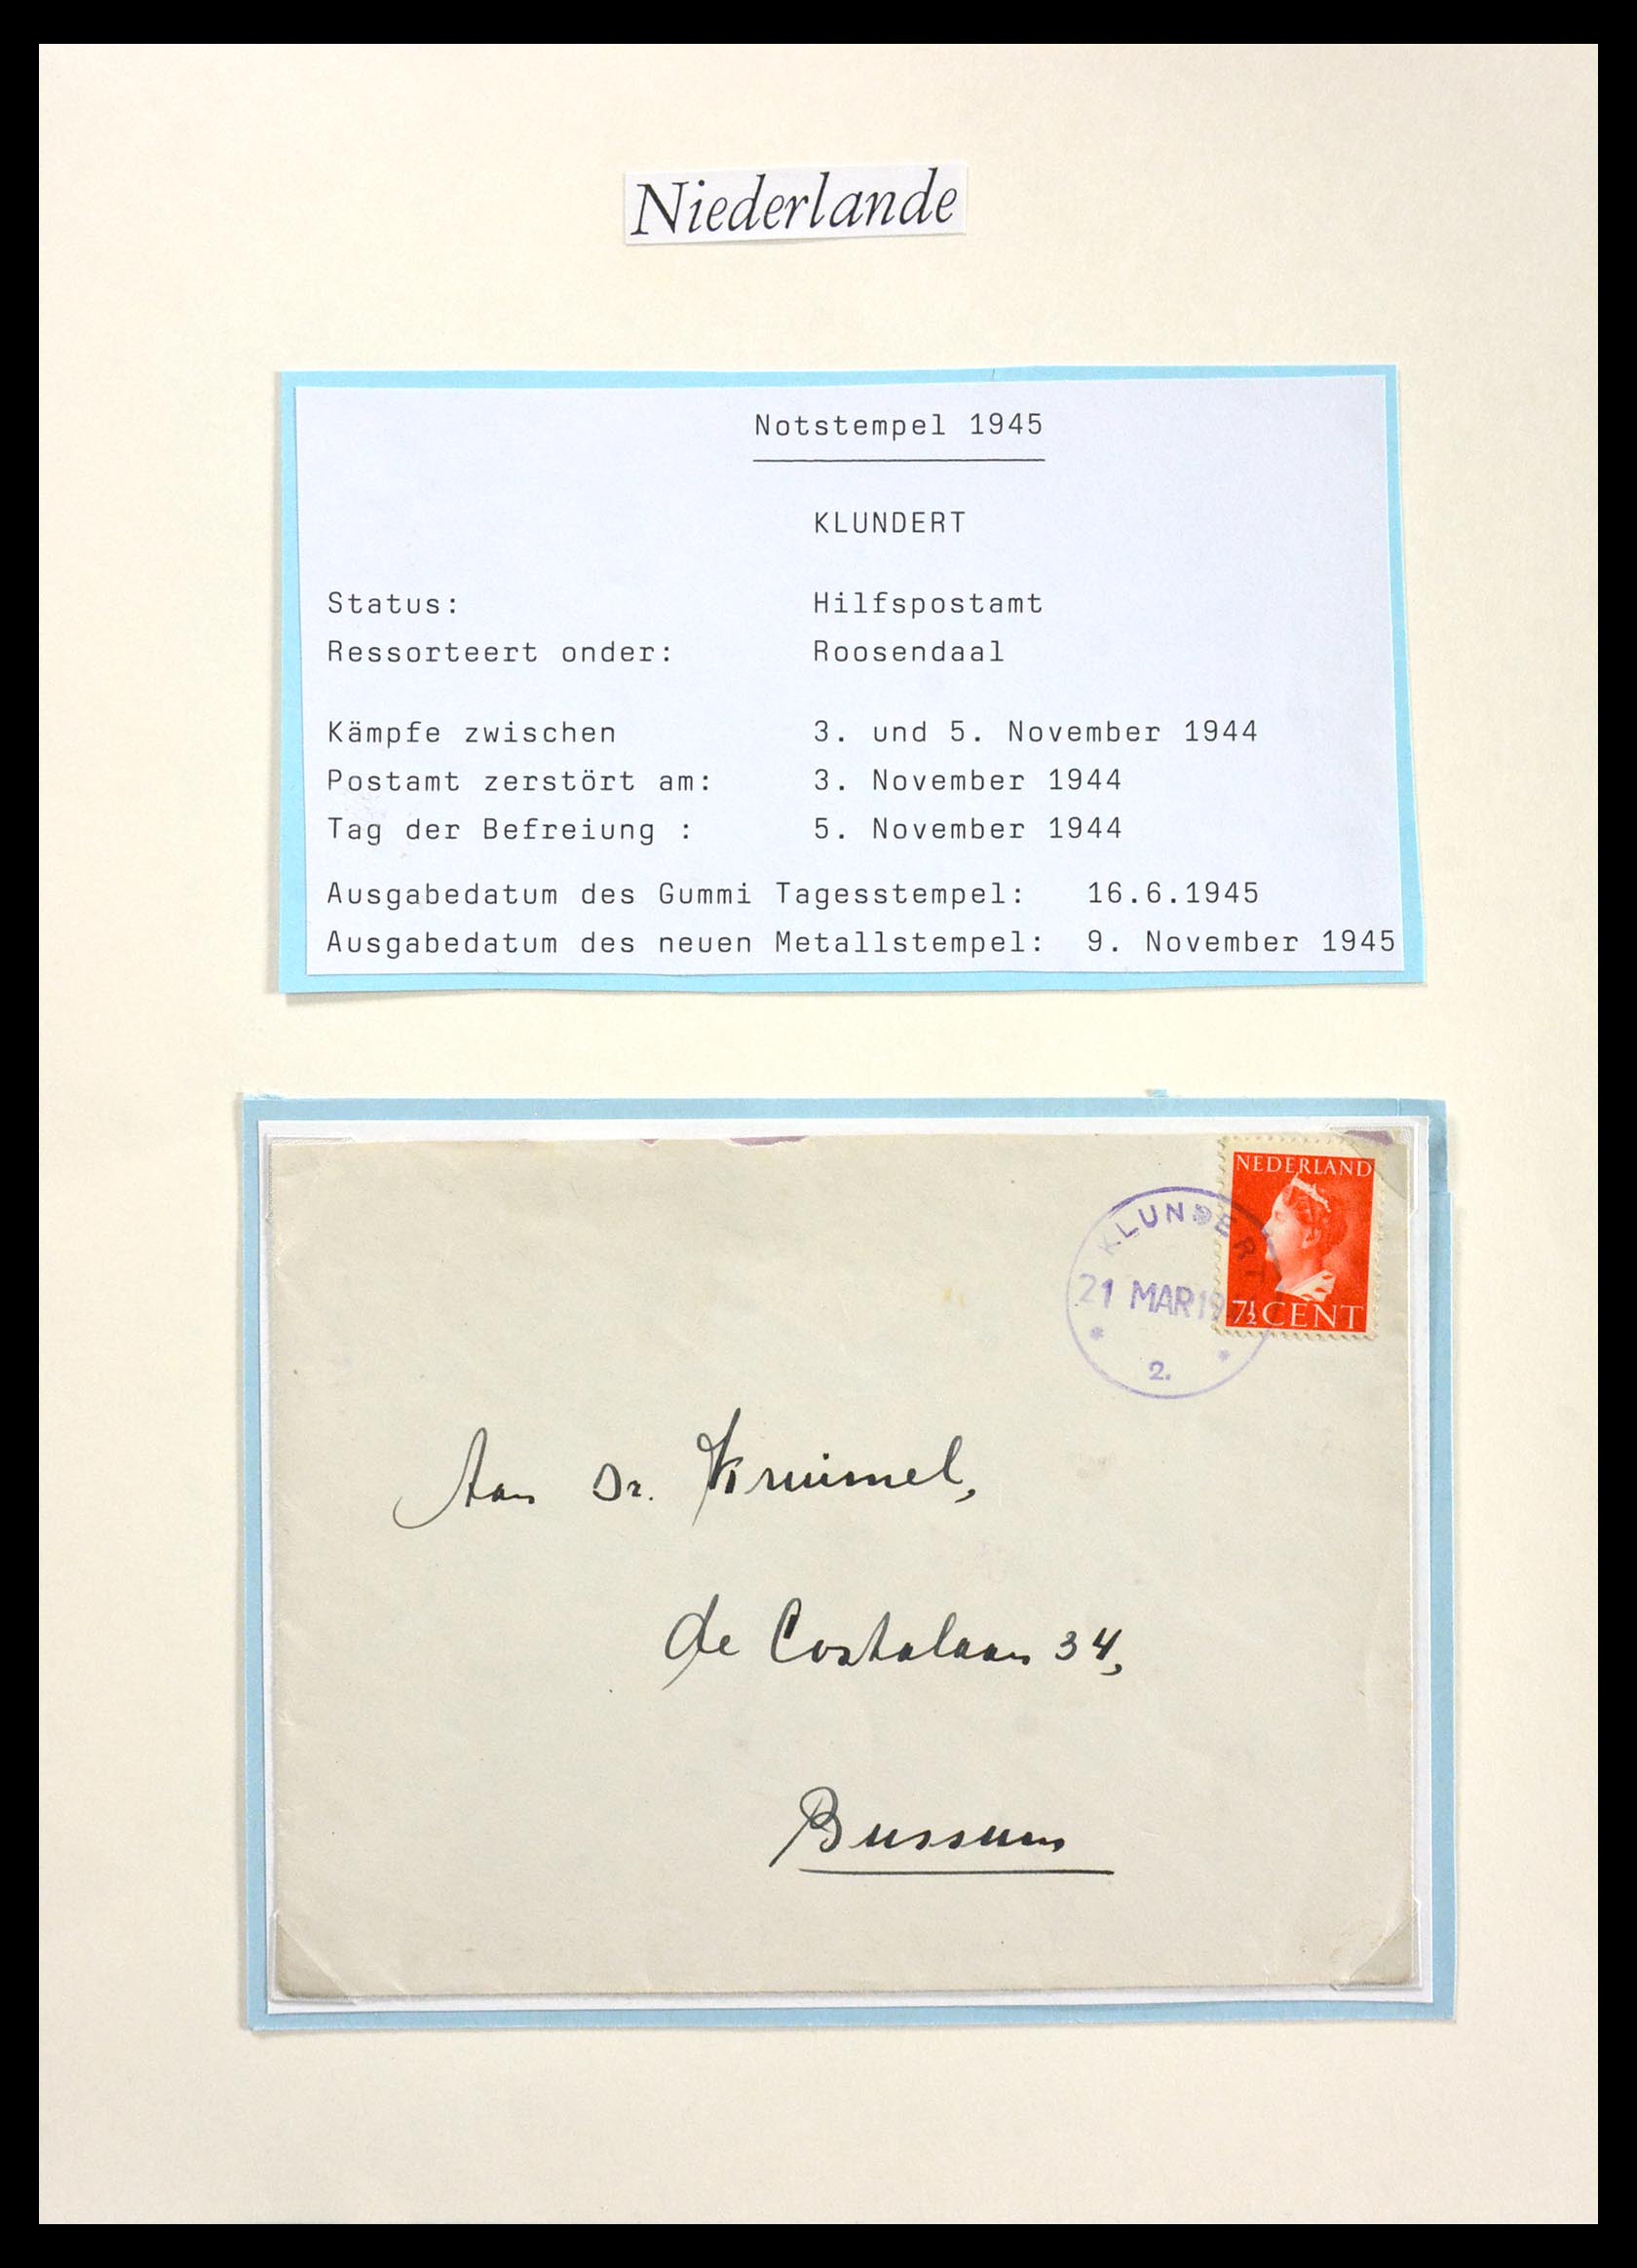 Niederlande
Notstempel 1945
KLUNDERT
Status: Hilfspostamt
Ressorteert onder: Roosendaal
Kämpfe zwischen 3. und 5. November 1944
Postamt zerstört am: 3. November 1944
Tag der Befreiung : 5. November 1944
Ausgabedatum des Gummi Tagesstempel: 16.6.1945
Ausgabedatum des neuen Metallstempel: 9. November 1945
NEDERLAND
KLUNDERT
21 MAR 19
7½ CENT
2.
Aan Dr. Kruimel,
de Costalaan 34,
Bussum